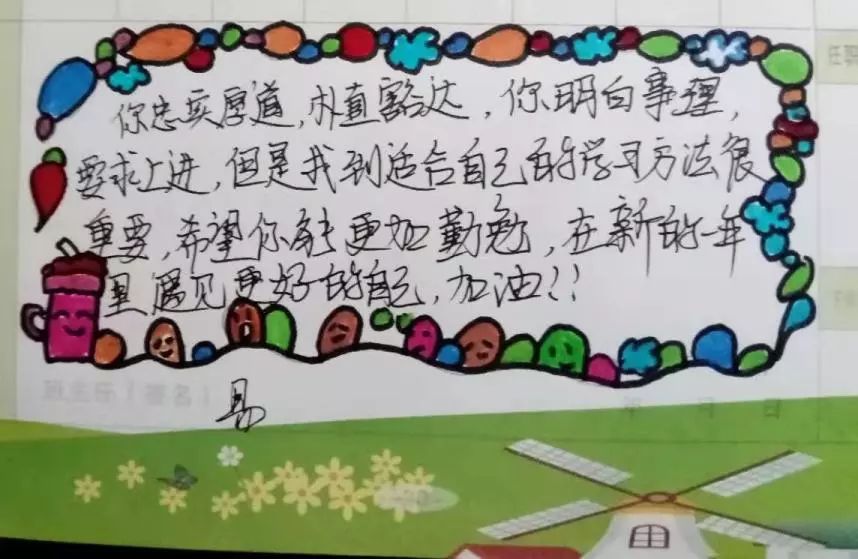 你忠实厚道,朴直豁达,你明白事理,
要求上进,但是找到适合自己的学习方法很
重要,希望你能更加勤勉,在新的一年
里遇见更好的自己,加油!!
班主任(签名)易
年 月 日